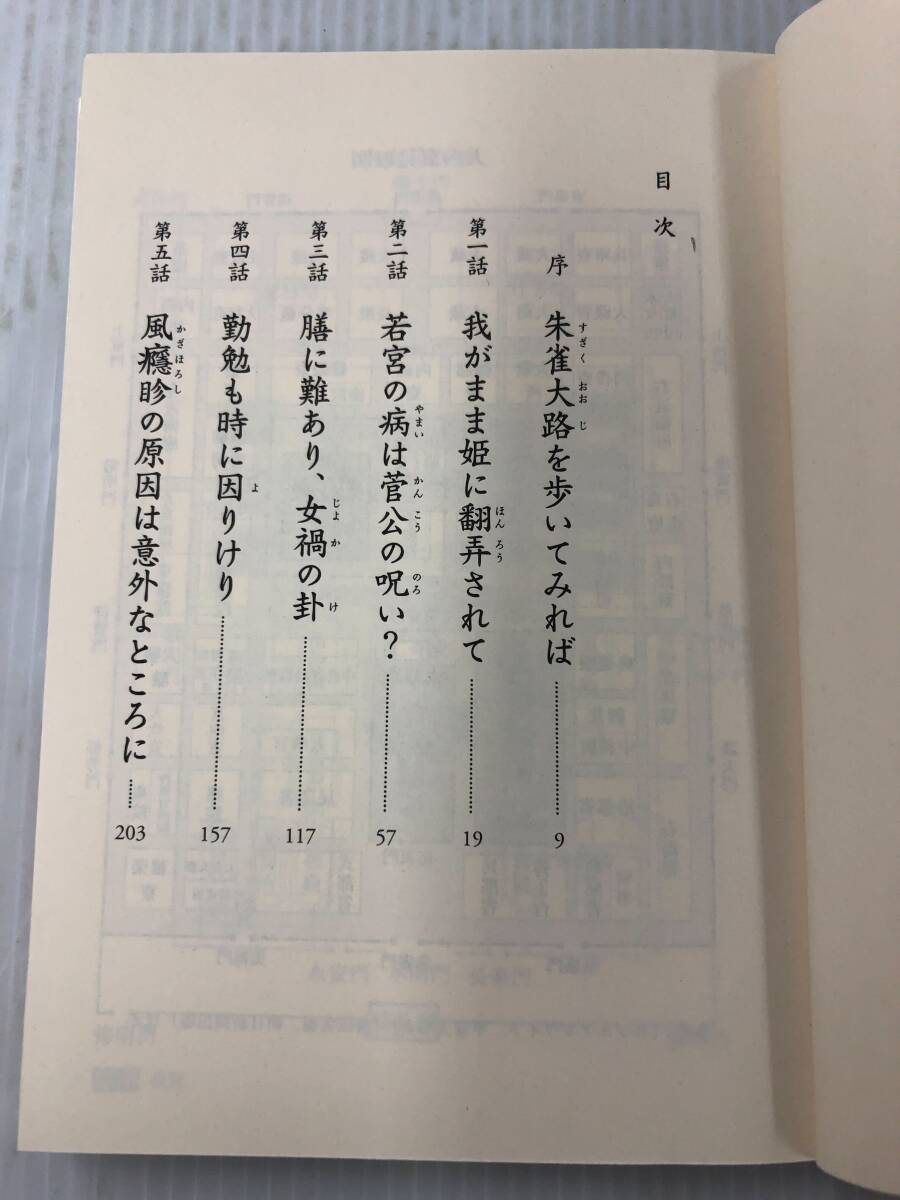 目次
序 朱雀大路を歩いてみれば 9
第一話 我がまま姫に翻弄されて 19
第二話 若宮の病は菅公の呪い? 57
第三話 膳に難あり、女禍の卦 117
第四話 勤勉も時に因りけり 157
第五話 風癮胗の原因は意外なところに 203